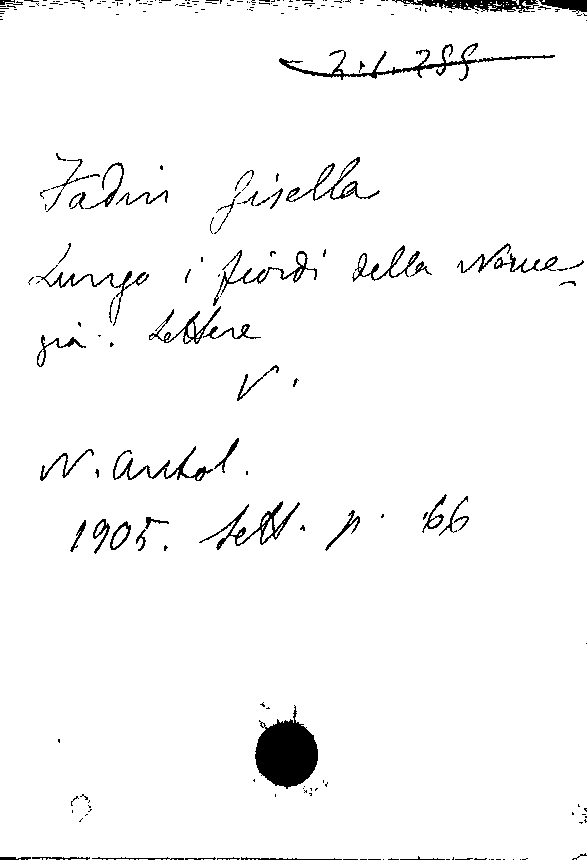 2.1.289
Fadin Gisella
Lungo i fiordi della Norve-
gia. Lettere
V.
N. Antol.
1905. Sett. p. 66